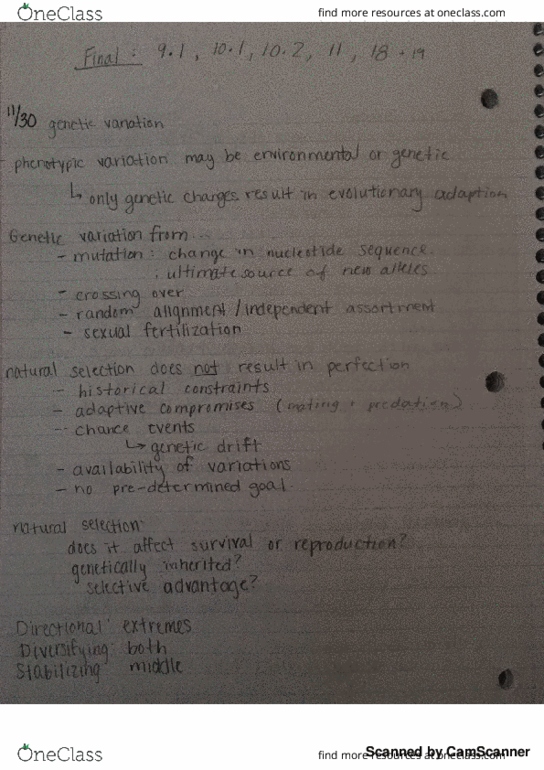 OneClass
find more resources at oneclass.com
Final: 9.1, 10.1, 10.2, 11, 18 + 19
11/30 genetic variation
- phenotypic variation may be environmental or genetic
↳ only genetic changes result in evolutionary adaption
Genetic variation from...
- mutation: change in nucleotide sequence
: ultimate source of new alleles
- crossing over
- random alignment / independent assortment
- sexual fertilization
natural selection does not result in perfection
- historical constraints
- adaptive compromises (mating + predation)
- chance events
↳ genetic drift
- availability of variations
- no pre-determined goal
natural selection
does it affect survival or reproduction?
genetically inherited?
selective advantage?
Directional: extremes
Diversifying: both
Stabilizing: middle
OneClass
find more resources at oneclass.com
Scanned by CamScanner